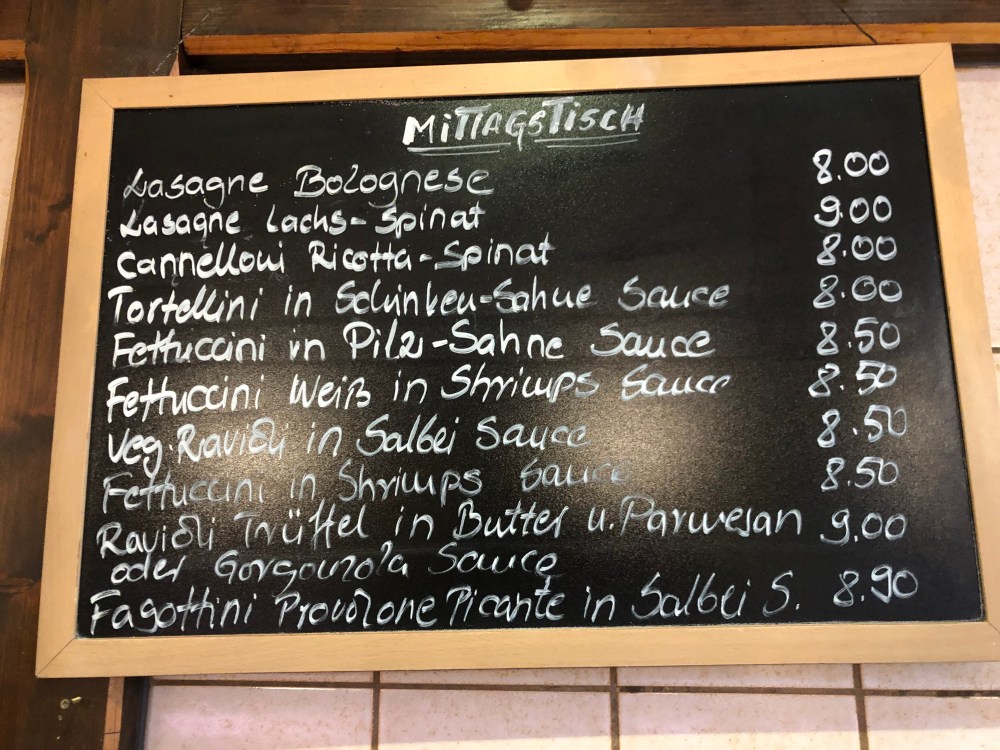 MiTTAGSTISCH
Lasagne Bolognese 8.00
Lasagne Lachs-Spinat 9.00
Cannelloni Ricotta-Spinat 8.00
Tortellini in Schinken-Sahne Sauce 8.00
Fettuccini in Pilz-Sahne Sauce 8.50
Fettuccini Weiß in Shrimps Sauce 8.50
Veg. Ravioli in Salbei Sauce 8.50
Fettuccini in Shrimps Sauce 8.50
Ravioli Trüffel in Butter u. Parmesan 9.00
oder Gorgonzola Sauce
Fagottini Provolone Picante in Salbei S. 8.90